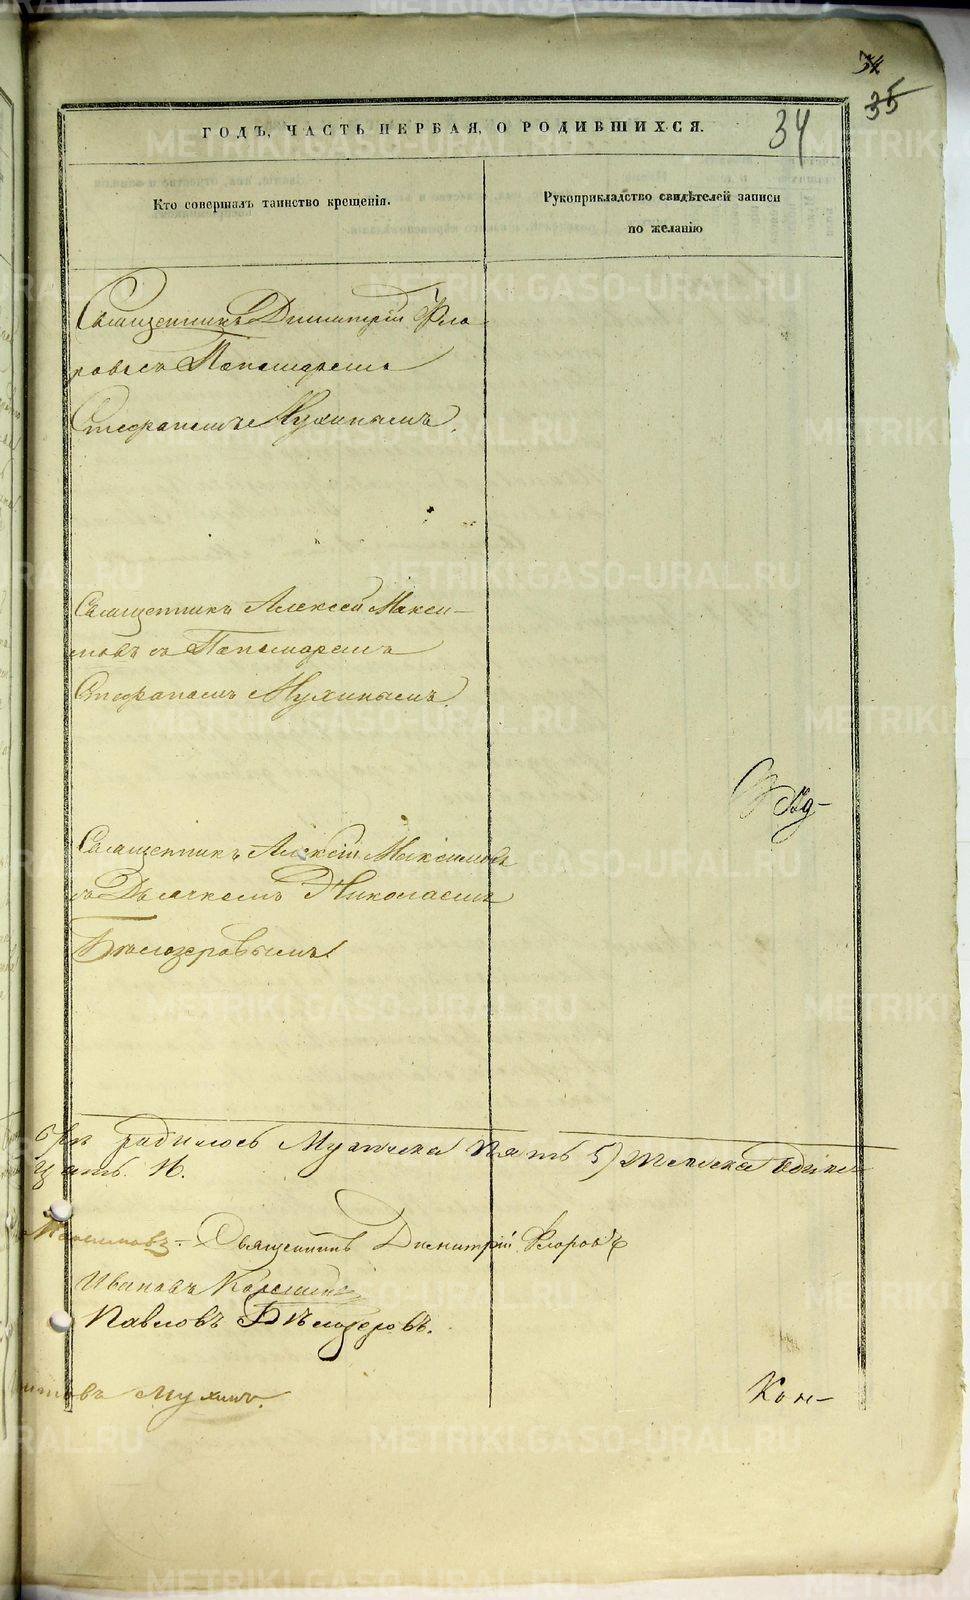 34
35
34
ГОДЪ, ЧАСТЬ ПЕРВАЯ, О РОДИВШИХСЯ.
Кто совершалъ таинство крещенія.
Рукоприкладство свидѣтелей записи
по желанію
Священникъ Димитрій Фло-
ровъ съ Пономаремъ
Стефаномъ Мухинымъ.
Священникъ Алексей Макси-
мовъ съ Пономаремъ
Стефаномъ Мухинымъ.
Священникъ Алексій Максимовъ
съ Дьячкомъ Николаемъ
Бѣлозеровымъ.
родилось Мужеска пять 5) женска одинъ
Максимовъ. Священникъ Димитрій Флоровъ
Ивановъ
Павловъ Бѣлозеровъ.
Мухинъ.
Кон-
METRIKI.GASO-URAL.RU